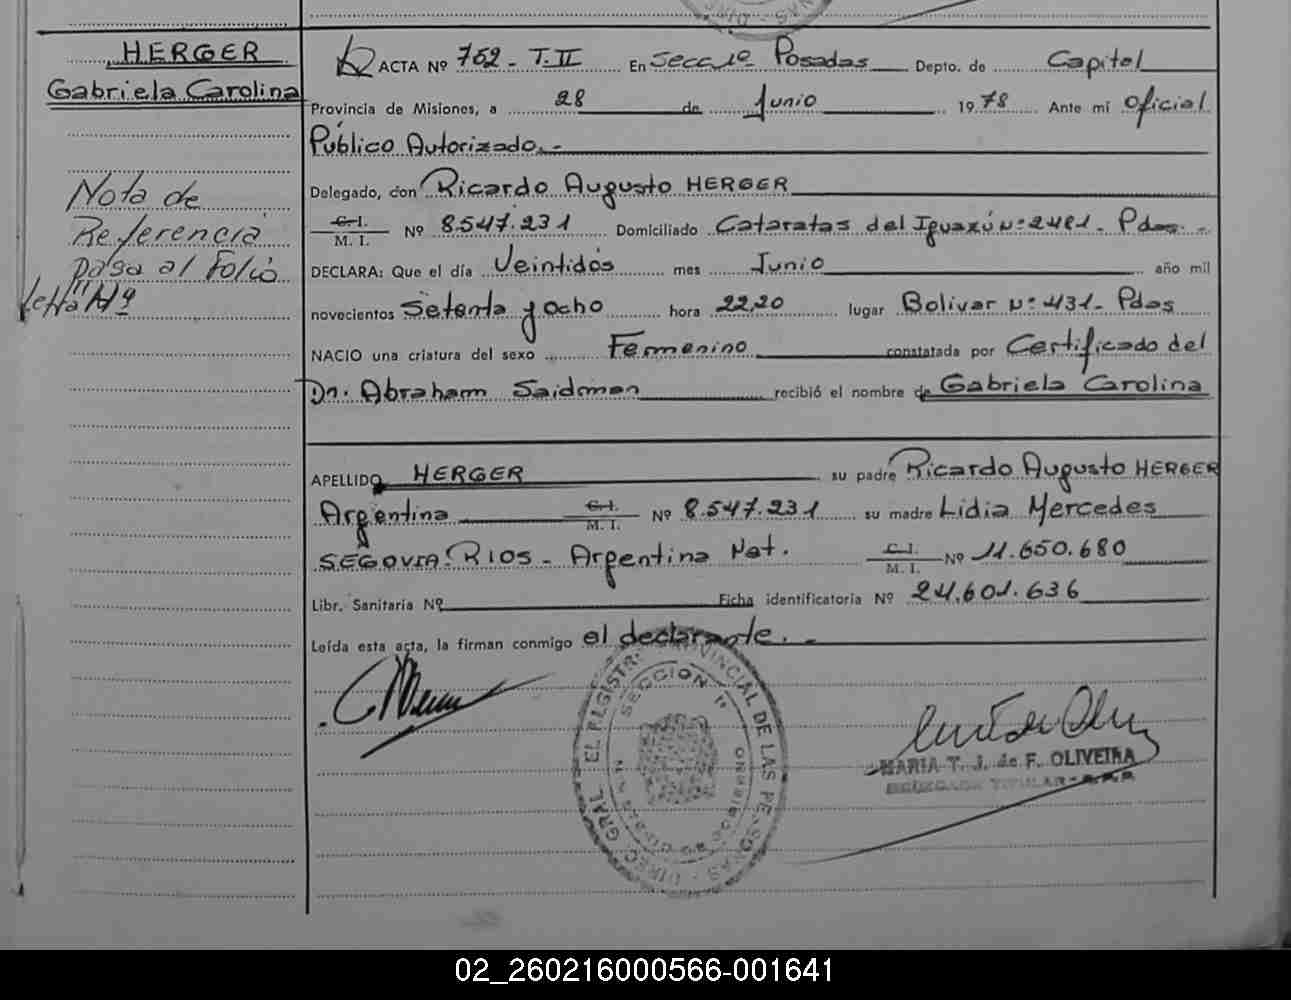 HERGER
Gabriela Carolina
Nota de
Referencia
pasa al Folio
letra "H"
ACTA Nº 762 - T. II En Secc 1º Posadas Depto. de Capital
Provincia de Misiones, a 28 de Junio 1978 Ante mi Oficial
Público Autorizado.-
Delegado, don Ricardo Augusto HERGER
C. I.
M. I. Nº 8.547.231 Domiciliado Cataratas del Iguazú Nº 2481 - Pdas. -
DECLARA: Que el día Veintidós mes Junio año mil
novecientos Setenta y ocho hora 22,20 lugar Bolivar Nº 431 - Pdas
NACIO una criatura del sexo Femenino constatada por Certificado del
Dr. Abraham Saidman recibió el nombre de Gabriela Carolina
APELLIDO HERGER su padre Ricardo Augusto HERGER
Argentina C. I. M. I. Nº 8.547.231 su madre Lidia Mercedes
SEGOVIA RIOS - Argentina Nat. C. I. M. I. Nº 11.650.680
Libr. Sanitaria Nº Ficha identificatoria Nº 24.601.636
Leída esta acta, la firman conmigo el declarante. -
DIREC. GRAL. EL REGISTR. PROVINCIAL DE LAS PERSONAS
SECCION 1ª
MARIA T. J. de F. OLIVEIRA
02_260216000566-001641